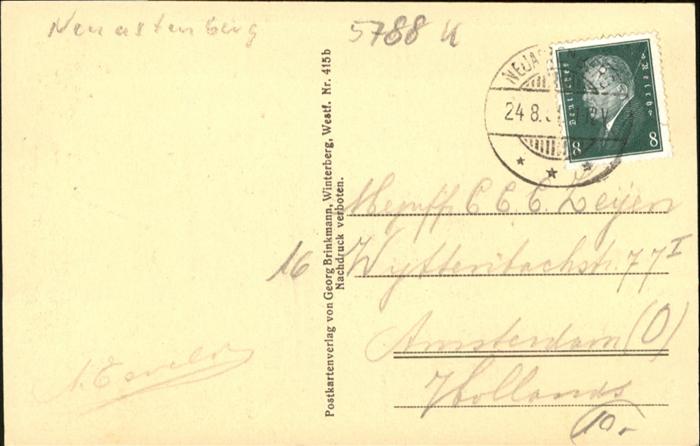 Neuastenberg
5788 K
24 8.
Deutsches Reich
8 8
Postkartenverlag von Georg Brinkmann, Winterberg, Westf. Nr. 415b
Nachdruck verboten.
Mejuff. C C C Zeijen
16 Wyttenbachstr. 77 I
Amsterdam (O)
Holland
10.-